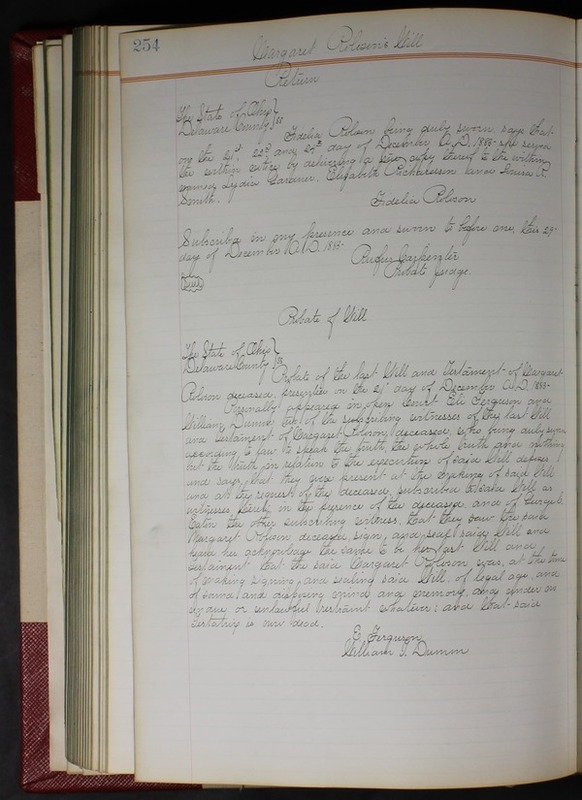 254
Margaret Robison's Will
Return
The State of Ohio }
Delaware County } ss
Fidelia Robison being duly sworn says that
on the 21st 22d and 24th day of December A.D. 1885 she served
the within notice by delivering a true copy thereof to the within
named Lydia Gardiner, Elizabeth Richardson and Louisa
Smith.
Fidelia Robison
Subscribed in my presence and sworn to before me, this 29
day of December A.D. 1885
Rufus Carpenter
Probate Judge.
Seal
Probate of Will
The State of Ohio }
Delaware County } ss
Probate of the last Will and Testament of Margaret
Robison deceased, presented on the 21 day of December A.D. 1885
Personally appeared in open Court Eli Ferguson and
William Dumm two of the subscribing witnesses of the last Will
and testament of Margaret Robison, deceased, who being duly sworn
according to law to speak the truth, the whole truth and nothing
but the truth, in relation to the execution of said Will deposes
and says, that they were present at the making of said Will
and at the request of the deceased, subscribed said Will as
witnesses in the presence of the deceased, and of
Eaton the other subscribing witness. That they saw the said
Margaret Robison deceased, sign, and seal said Will and
heard her acknowledge the same to be her last Will and
testament that the said Margaret Robison was, at the time
of making signing and sealing said Will, of legal age, and
of sound and disposing mind and memory, and under no
undue or unlawful restraint whatever; and that said
testatrix is now dead.
E. Ferguson
William T. Dumm